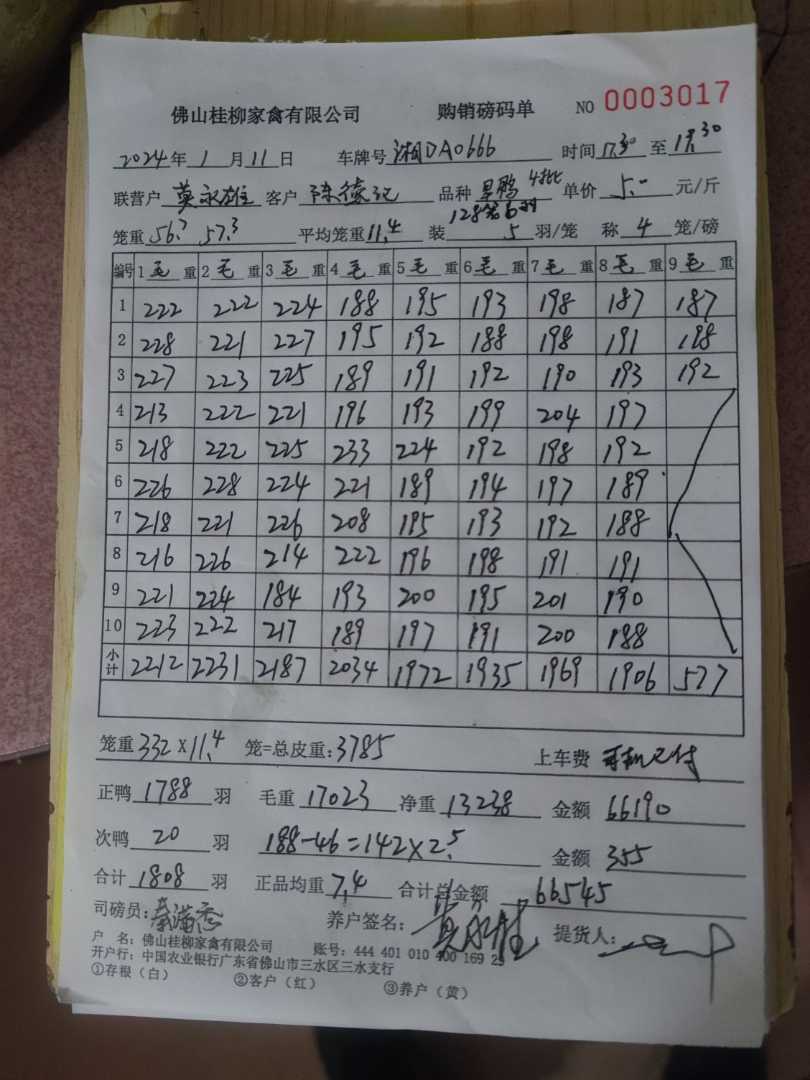 佛山桂柳家禽有限公司 购销磅码单 NO 0003017
2024年 1月 11日 车牌号 湘DA0666 时间 17:30 至
联营户 莫永雄 客户 陈德记 品种 单价 5.- 元/斤
笼重 56.2 57.3 平均笼重 11.4 装 5 羽/笼 称 4 笼/磅
编号 1毛重 2毛重 3毛重 4毛重 5毛重 6毛重 7毛重 8毛重 9毛重
1 222 222 224 188 195 193 198 187 187
2 228 221 227 195 192 188 198 191 198
3 227 223 225 189 191 192 190 193 192
4 213 222 221 196 193 199 204 197
5 218 222 225 233 224 192 198 192
6 226 228 224 221 189 194 197 189
7 218 221 226 208 195 193 192 188
8 216 226 214 222 196 198 191 191
9 221 224 184 193 200 195 201 190
10 223 222 217 189 197 191 200 188
小计 2212 2231 2187 2034 1972 1935 1969 1906 577
笼重 332×11.4 笼=总皮重: 3785 上车费 已付
正鸭 1788 羽 毛重 17023 净重 13238 金额 66190
次鸭 20 羽 188-46=142×2.5 金额 355
合计 1808 羽 正品均重 7.4 合计总金额 66545
司磅员: 养户签名: 提货人:
户 名: 佛山桂柳家禽有限公司 账号: 444 401 010 400 169 25
开户行: 中国农业银行广东省佛山市三水区三水支行
①存根(白) ②客户(红) ③养户(黄)